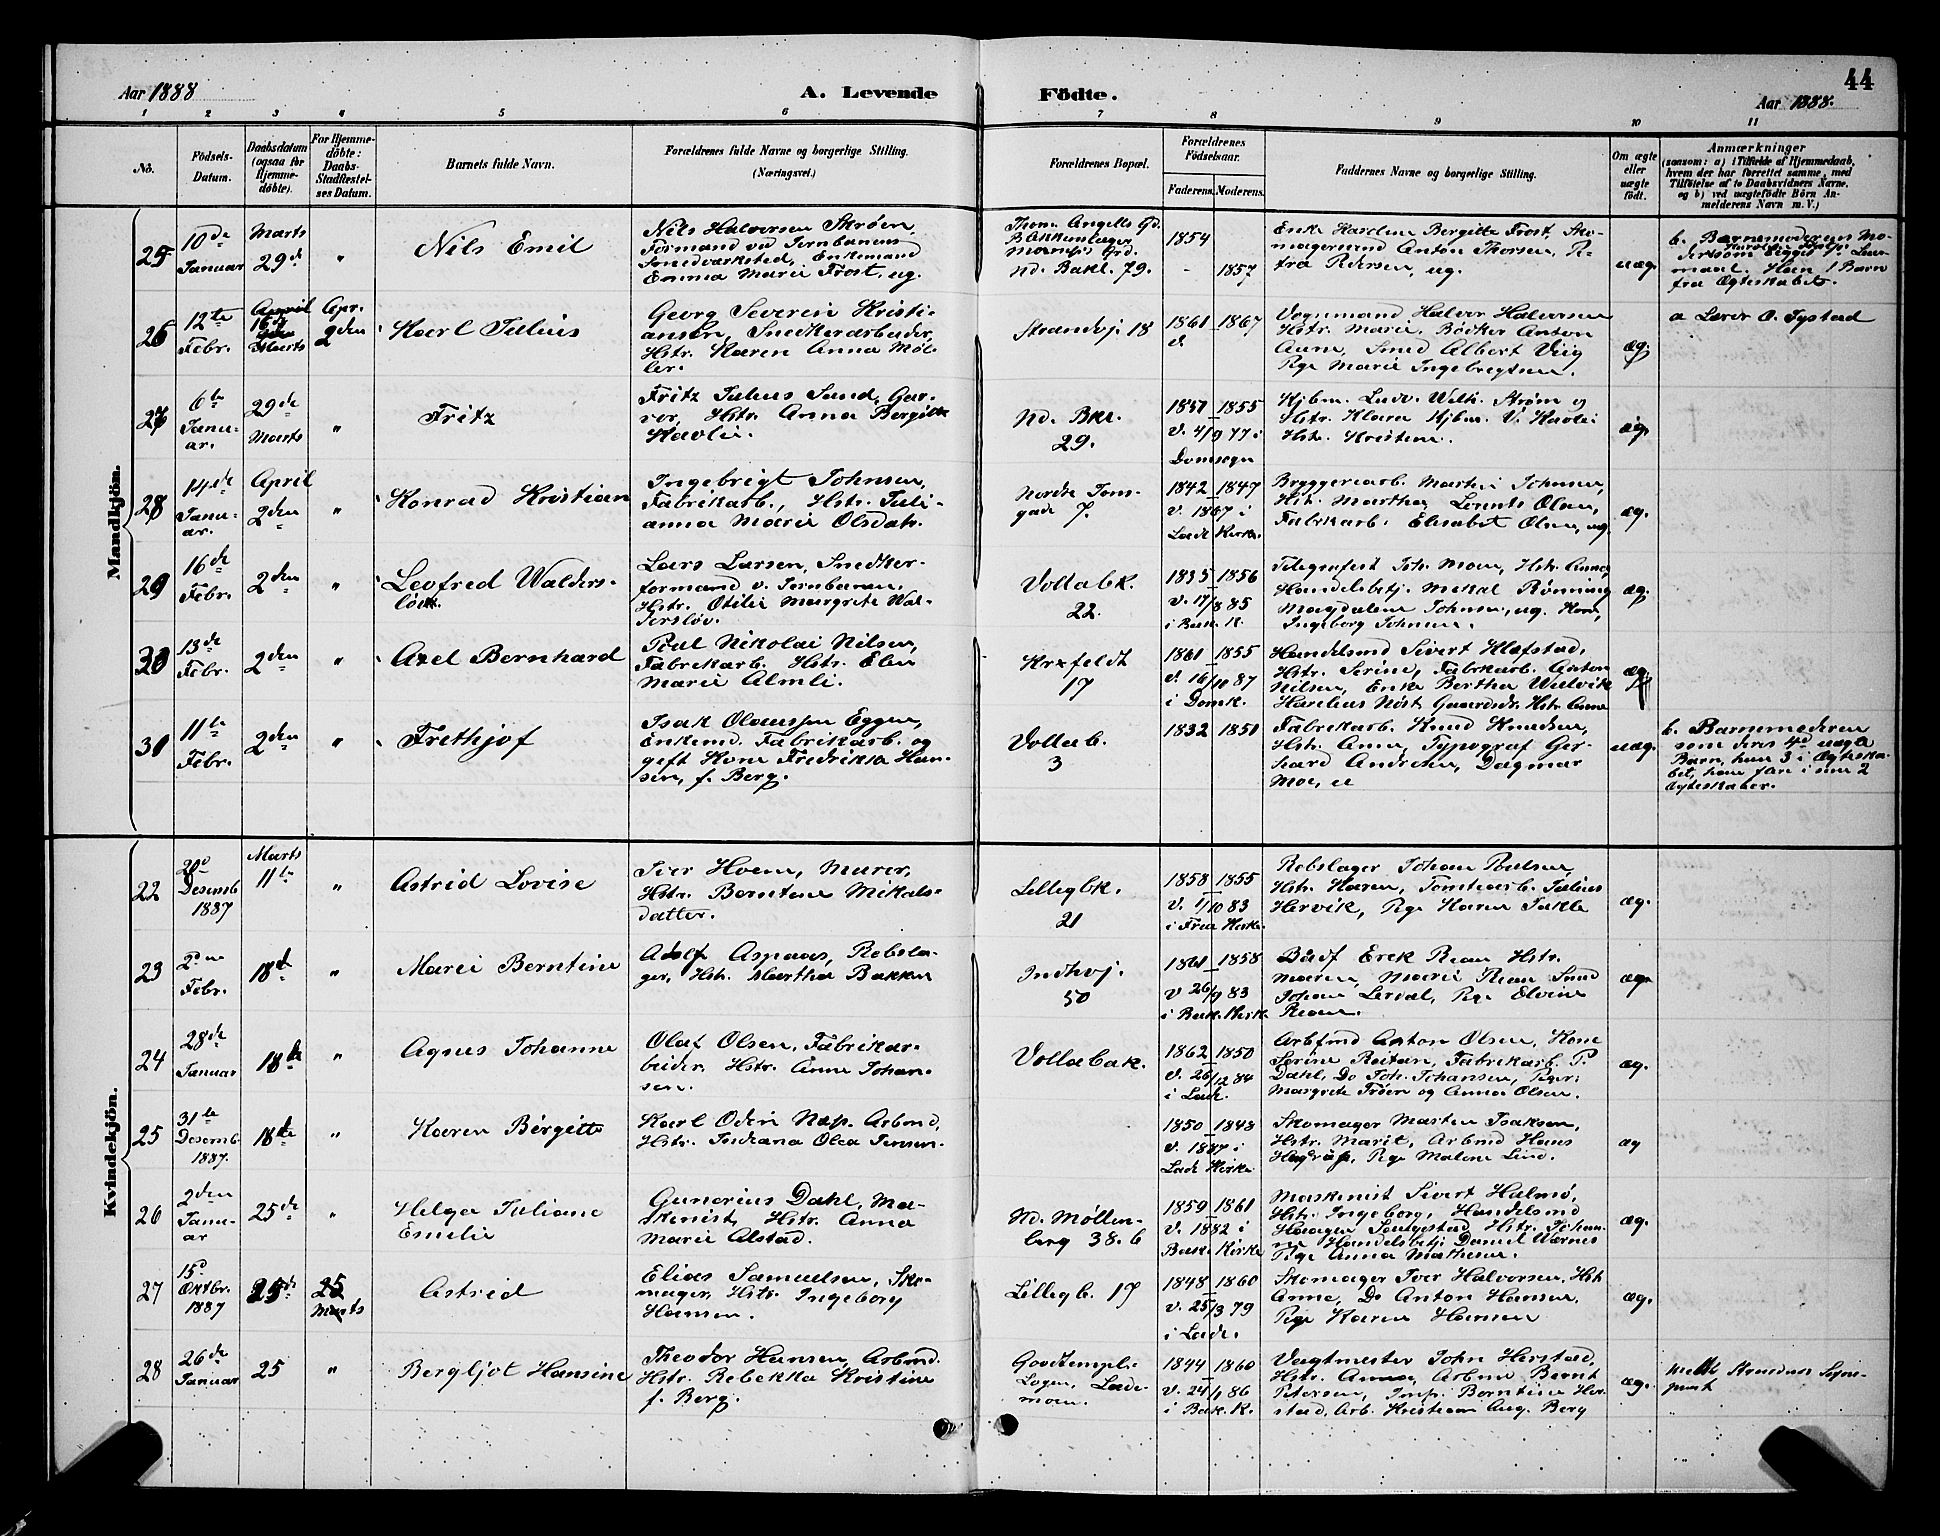 Aar 1888
A. Levende
Födte.
44
Aar 1888.
1 2 3 4 5 6 7 8 9 10 11
No.
Födsels-
Datum.
Daabsdatum
(ogsaa for
Hjemme-
döbte).
For Hjemme-
döbte:
Daabs-
Stadfæstel-
ses Datum.
Barnets fulde Navn.
Forældrenes fulde Navne og borgerlige Stilling.
(Næringsvei.)
Forældrenes Bopæl.
Forældrenes
Födselsaar.
Faderens. Moderens.
Faddernes Navne og borgerlige Stilling.
Om ægte
eller
uægte
födt.
Anmærkninger
(saasom: a) i Tilfælde af Hjemmedaab,
hvem der har forrettet samme, med
Tilföielse af to Daabsvidners Navne,
og b) ved uægtefödte Börn An-
melderens Navn m. V.)
Mandkjön.
25
10de
Januar
Marts
29de
"
Nils Emil
Nils Halvorsen Skrøen,
Formand ved Jernbanens
Smedværksted, Enkemand
Emma Marie Frost, ug.
Thom. Angells Gd.
Nd. Bakl. 79.
1854
- 1857
Enke Karoline Bergitte Frost, Sko-
magersvend Anton Thorsen, P-
tra Pedersen, ug.
uæg.
b. Barnemoderens Mo-
fra Ægteskabet.
26
12te
Febr.
April
16de
Marts
Apr.
2den
Karl Julius
Georg Severin Kristi-
ansen, Snedkerarbeider,
Hstr. Karen Anna Møl-
ler.
Strandvj. 18
1861 - 1867
v.
Vognmand Halvor Halvorsen
Hstr. Marie. Bödker Anton
Aune, Smed Albert Viig
Pige Marie Ingebregtsen.
æg.
a Lærer O. Tystad
27
6te
Janu-
ar.
29de
Marts
"
Fritz
Fritz Julius Sund, Gar-
ver, Hstr. Anna Bergitte
Havlie.
Nd. Bkl.
29.
1857 - 1855
v. 4/9 77 i
Domsogn
Kjbm. Ludv. Wilh. Strøm og
Hstr. Klara Kjbm. V. Havlei
Hstr. Kristine.
æg.
28
14de
Janu-
ar.
April
2den
"
Konrad Kristian
Ingebrigt Johnsen,
Fabrikarb., Hstr. Juli-
anna Marie Olsdatr.
Nordre Toms-
gade 7.
1842 - 1847
v. 1867 i
Lade Kirke.
Bryggeriarb. Martin Johnsen,
Hstr. Martha, Lorents Olsen,
Fabrikarb. Elisabet Olsen, ug
æg.
29
16de
Febr.
2den
"
Leofred Walders-
löv.
Lars Larsen, Snedker-
formand v. Jernbanen,
Hstr. Otilie Margrete Wal-
dersløv.
Vollabk.
22.
1835 - 1856
v. 17/8 85
i Bak. K.
Telegrafist Joh. Moen, Hstr. Anna,
Handelsbetj. Mekal Rönning
Magdalene Johnsen, ug. Kone,
Ingeborg Johnsen.
æg.
30
13de
Febr.
2den
"
Axel Bernhard
Poul Nikolai Nilsen,
Fabrikarb. Hstr. Elen
Marie Almli.
Krefeldt
17
1861 - 1855
v. 16/10 87
i Domk.
Handelsmd Sivert Klefstad,
Hstr. Serine, Fabrikarb. Anton
Nilsen, Enke Bertha Wulvik
Harelius Nöst Gaardsdr. Hstr. Anne
æg.
31
11te
Febr.
2den
"
Frethjof
Isak Olaussen Eggen,
Enkemd. Fabrikarb. og
gift Kone Fredrikka Han-
sen, f. Berg.
Vollab.
3
1832 1851
Fabrikarb. Knud Knudsen,
Hstr. Anne, Typograf Ger-
hard Andresen, Dagmar
Moe,
uæg.
b. Barnemoderen
som deres 4d uægte
Barn, hun 3 i Ægteska-
bet, han fire i sine 2
Ægteskaber.
Kvindekjön.
22
20d
Desemb
1887
Marts
11te
"
Astrid Lovise
Iver Hoem, Murer,
Hstr. Berntine Mikals-
datter.
Lillegbk.
21
1858 - 1855
v. 1/10 83
i Frue Kirke.
Rebslager Johan Poulsen,
Hstr. Karen, Tomtearb. Julius
Hervik, Pge Karen Takle
æg.
23
2den
Febr.
18d
"
Marie Berntine
Adolf Aspaas, Rebsla-
ger, Hstr. Martha Bakken
Indhvj.
50
1861 - 1858
v 26/9 83
i Bak. Kirk.
Bödf Erek Rean Hstr.
Maren, Marie Rean Smd
Johan Lerdal, Pge Elvine
Rean.
æg.
24
28de
Januar
18de
"
Agnes Johanne
Olaf Olsen, Fabrikar-
beider, Hstr. Anne Johan-
sen.
Vollabak.
1862 - 1850
v. 26/12 84
i Lade.
Arbfmd Anton Olsen, Kone
Serine Reitan, Fabrikarb. P.
Dahl, Do Joh. Johansen, Piger:
Margrete Fröen og Anna Olsen.
æg.
25
31te
Desemb.
1887.
18de
"
Karen Birgitte
Karl Odin Næs, Arbmd,
Hstr. Jordiana Olea Jensen.
1850 - 1848
v. 1887 i
Lade Kirke
Skomager Marten Isaksen,
Hstr. Marit, Arbmd Hans
Pge Malene Lind.
æg
26
2den
Janu-
ar
25de
"
Helga Juliane
Emelie
Gunerius Dahl, Ma-
skinist, Hstr. Anna
Marie Alstad.
Nd. Möllen-
berg 38. b
1859 - 1861
v. 1882 i
Bak. Kirke
Maskinist Sivert Halmö,
Hstr. Ingeborg, Handelsmd
Haagen Soutgestad Hstr. Johan-
ne, Handelsbetj. Daniel Wærnes
Pige Anna Mathesen.
æg.
27
15d
Oktbr.
1887
25de
25
Marts
Astrid
Elias Samuelsen, Sko-
mager, Hstr. Ingeborg
Hansen.
Lillegb. 17
1848 - 1860
v. 25/3 79
i Lade.
Skomager Iver Halvorsen, Hst
Anne, Do Anton Hansen.
Pige Karen Hansen
æg.
28
26de
Januar
25
"
Bergljot Hansine
Theodor Hansen, Arbmd.
Hstr. Rebekka Kristine
f. Berg.
Goodtempl.
Logen, Lade-
moen.
1844 - 1860
v. 24/1 86
i Bak. K.
Vagtmester John Herstad,
Hstr. Anna, Arbmd Bernt
Petersen, Jmf. Berntine Her-
stad, Arb. Kristian Aug. Berg
æg.